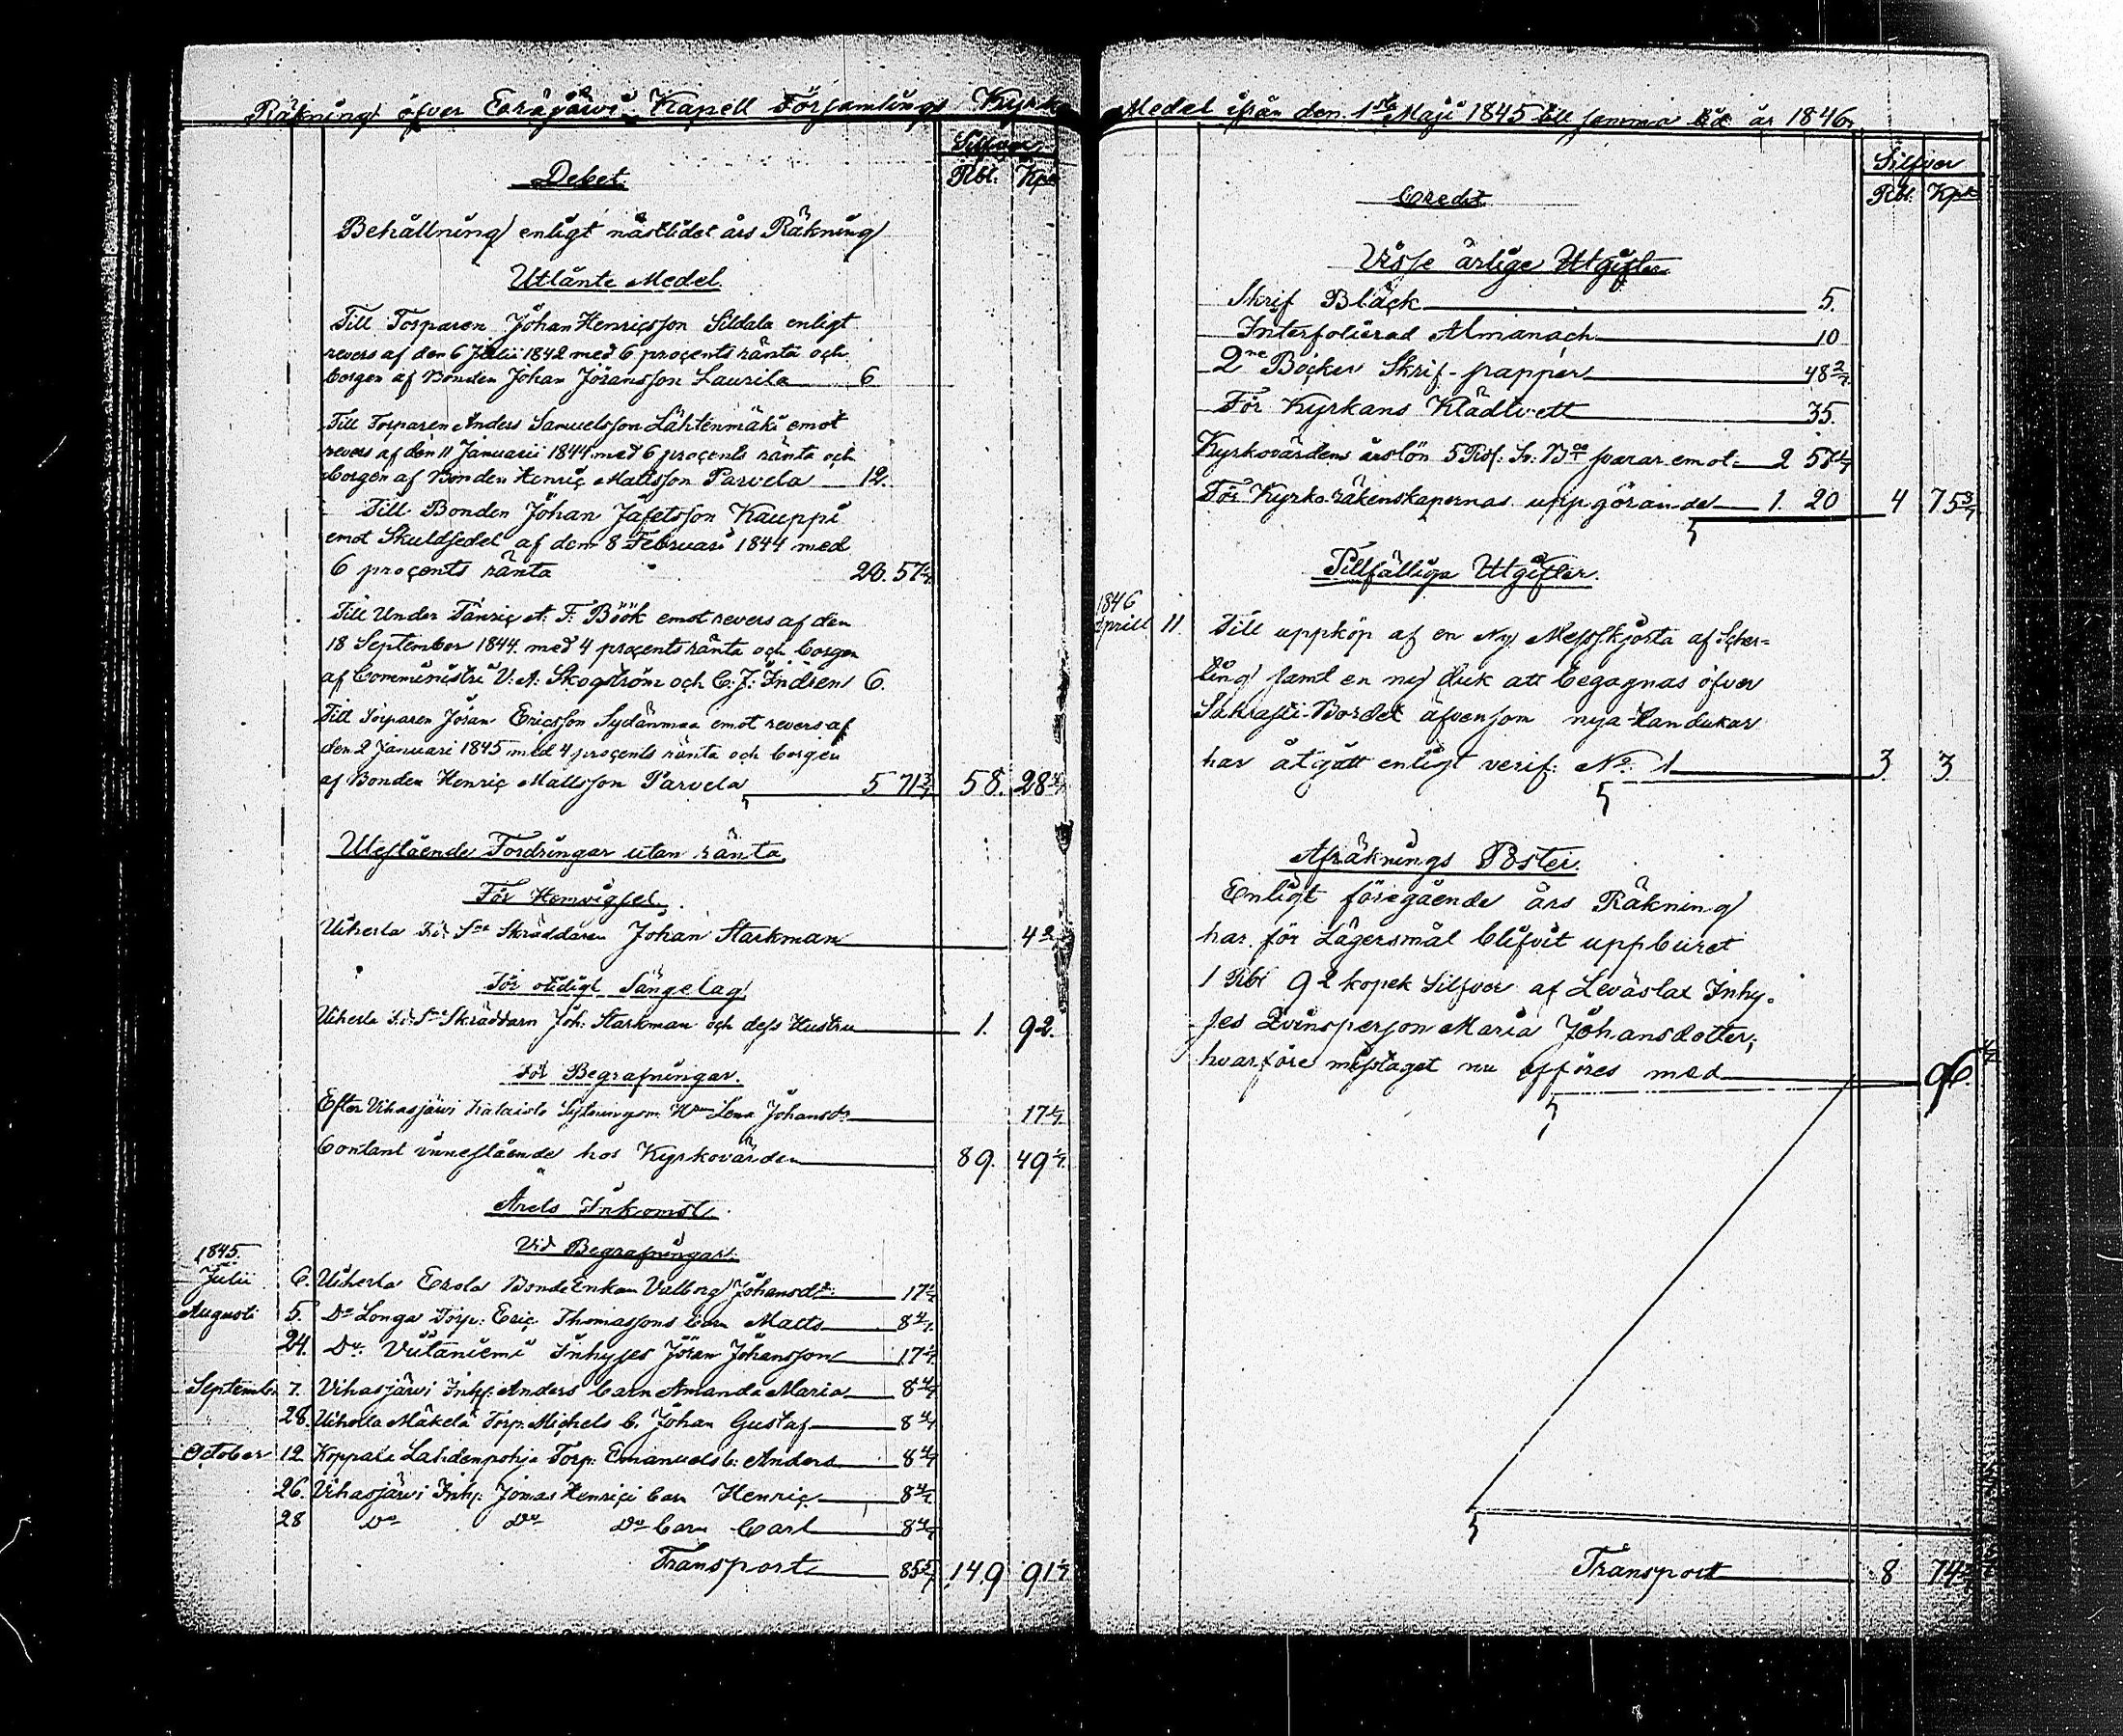 Räkning öfver Eräjärvi Kapell Församlings Kyrko
Silfver
Debet.
Rbl. Kpk
Behållning enligt nästlidet års Räkning
Utlånte Medel.
Till Torparen Johan Henricsson Sildala enligt
revers af den 6 Julii 1842 med 6 procents ränta och
borgen af Bonden Johan Jöransson Laurila 6
Till Torparen Anders Samuelsson Lähtenmäki emot
revers af den 11 Januarii 1844 med 6 procents ränta och
borgen af Bonden Henric Mattsson Parvela 12.
Till Bonden Johan Jafetsson Kauppi
emot Skuldsedel af dem 8 Februari 1844 med
6 procents ränta 28. 57 1/7
Till Under Fänric A. F. Böök emot revers af den
18 September 1844 med 4 procents ränta och borgen
af Comministri V. A. Skogström och C. J. Indrén 6.
Till Torparen Jöran Ericsson Sydänmaa emot revers af
den 2 Januari 1845 med 4 procents ränta och borgen
af Bonden Henric Mattsson Parvela 5 71 3/7 58. 28 4/7
Utestående Fordringar utan ränta
För Hemvigsel.
Uiherla Skräddaren Johan Starkman 42
För otidigt Sängelag
Uiherla Skräddarn Joh: Starkman och dess Hustru 1. 92.
För Begrafningar.
Efter Vihasjärvi Lena Johansdr 17 1/7
Contant innestående hos Kyrkovärden 89. 49 1/7
Årets Inkomst
Vid Begrafningar.
1845.
Julii 6. Uiherla Erola Bonde Enkan Valborg Johansdr. 17 1/7
Augusti 5. Do Longa Torp: Eric Thomassons barn Matts 8 4/7
24. Do Viitaniemi Inhyses Jöran Johansson 17 1/7
September 7. Vihasjärvi Inhy. Anders barn Amanda Maria 8 4/7
28. Uiherla Mäkelä Torp. Michels b. Johan Gustaf 8 4/7
October 12 Koppala Lahdenpohja Torp: Emanuels b: Anders 8 4/7
26. Vihasjärvi Inhy. Jonas Henrici barn Henric 8 4/7
28 Do Do Do barn Carl 8 4/7
Transport 85 5/7 149 91 1/7
Medel ifrån den 1sta Maji 1845 till samma tid år 1846.
Silfver
Rbl. Kpk
Credit
Visse årlige Utgifter
Skrif Bläck 5.
Interfolierad Almanach 10
2ne Böcker Skrif-papper 48 2/7
För Kyrkans Klädtvett 35.
Kyrkovärdens årslön 5 svarar emot 2 57 1/7
För Kyrko-räkenskapernas uppgörande 1. 20 4 75 3/7
Tillfällige Utgifter.
1846
Aprill 11. Till uppköp af en Ny Messskjorta af Scher-
ting samt en ny duk att begagnas öfver
Sakrasti-Bordet äfvensom nya Handukar
har åtgått enligt verif: No 1 3 3
Afräknings Poster.
Enligt föregående års Räkning
har för Lägersmål blifvit uppburet
1 Rbl 92 kopek Silfver af Leväslax Inhy-
ses Qvinsperson Maria Johansdotter,
hvarföre misstaget nu afföres med 96.
Transport 8 74